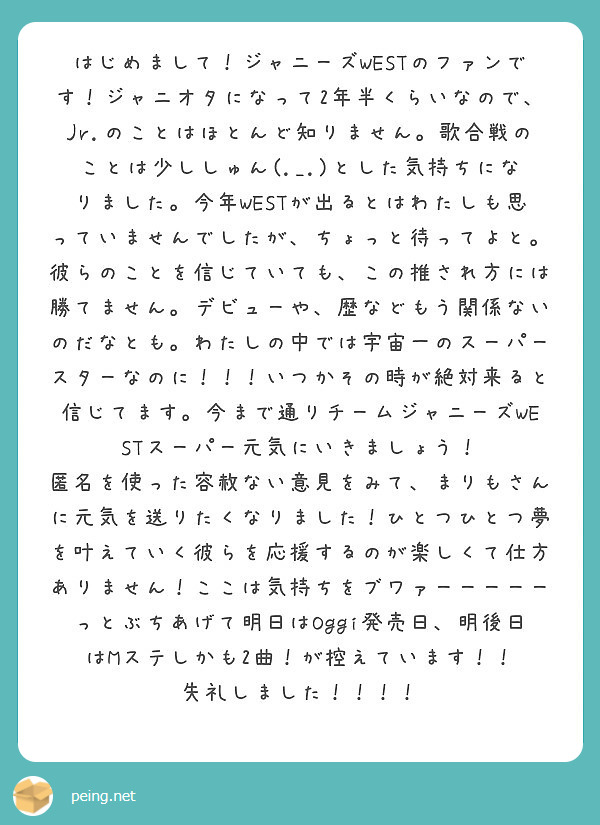 はじめまして！ジャニーズWESTのファンで
す！ジャニオタになって2年半くらいなので、
Jr.のことはほとんど知りません。歌合戦の
ことは少ししゅん(._.)とした気持ちにな
りました。今年WESTが出るとはわたしも思
っていませんでしたが、ちょっと待ってよと。
彼らのことを信じていても、この推され方には
勝てません。デビューや、歴などもう関係ない
のだなとも。わたしの中では宇宙一のスーパー
スターなのに！！！いつかその時が絶対来ると
信じてます。今まで通りチームジャニーズWE
STスーパー元気にいきましょう！
匿名を使った容赦ない意見をみて、まりもさん
に元気を送りたくなりました！ひとつひとつ夢
を叶えていく彼らを応援するのが楽しくて仕方
ありません！ここは気持ちをブワァーーーーー
っとぶちあげて明日はOggi発売日、明後日
はMステしかも2曲！が控えています！！
失礼しました！！！！
peing.net